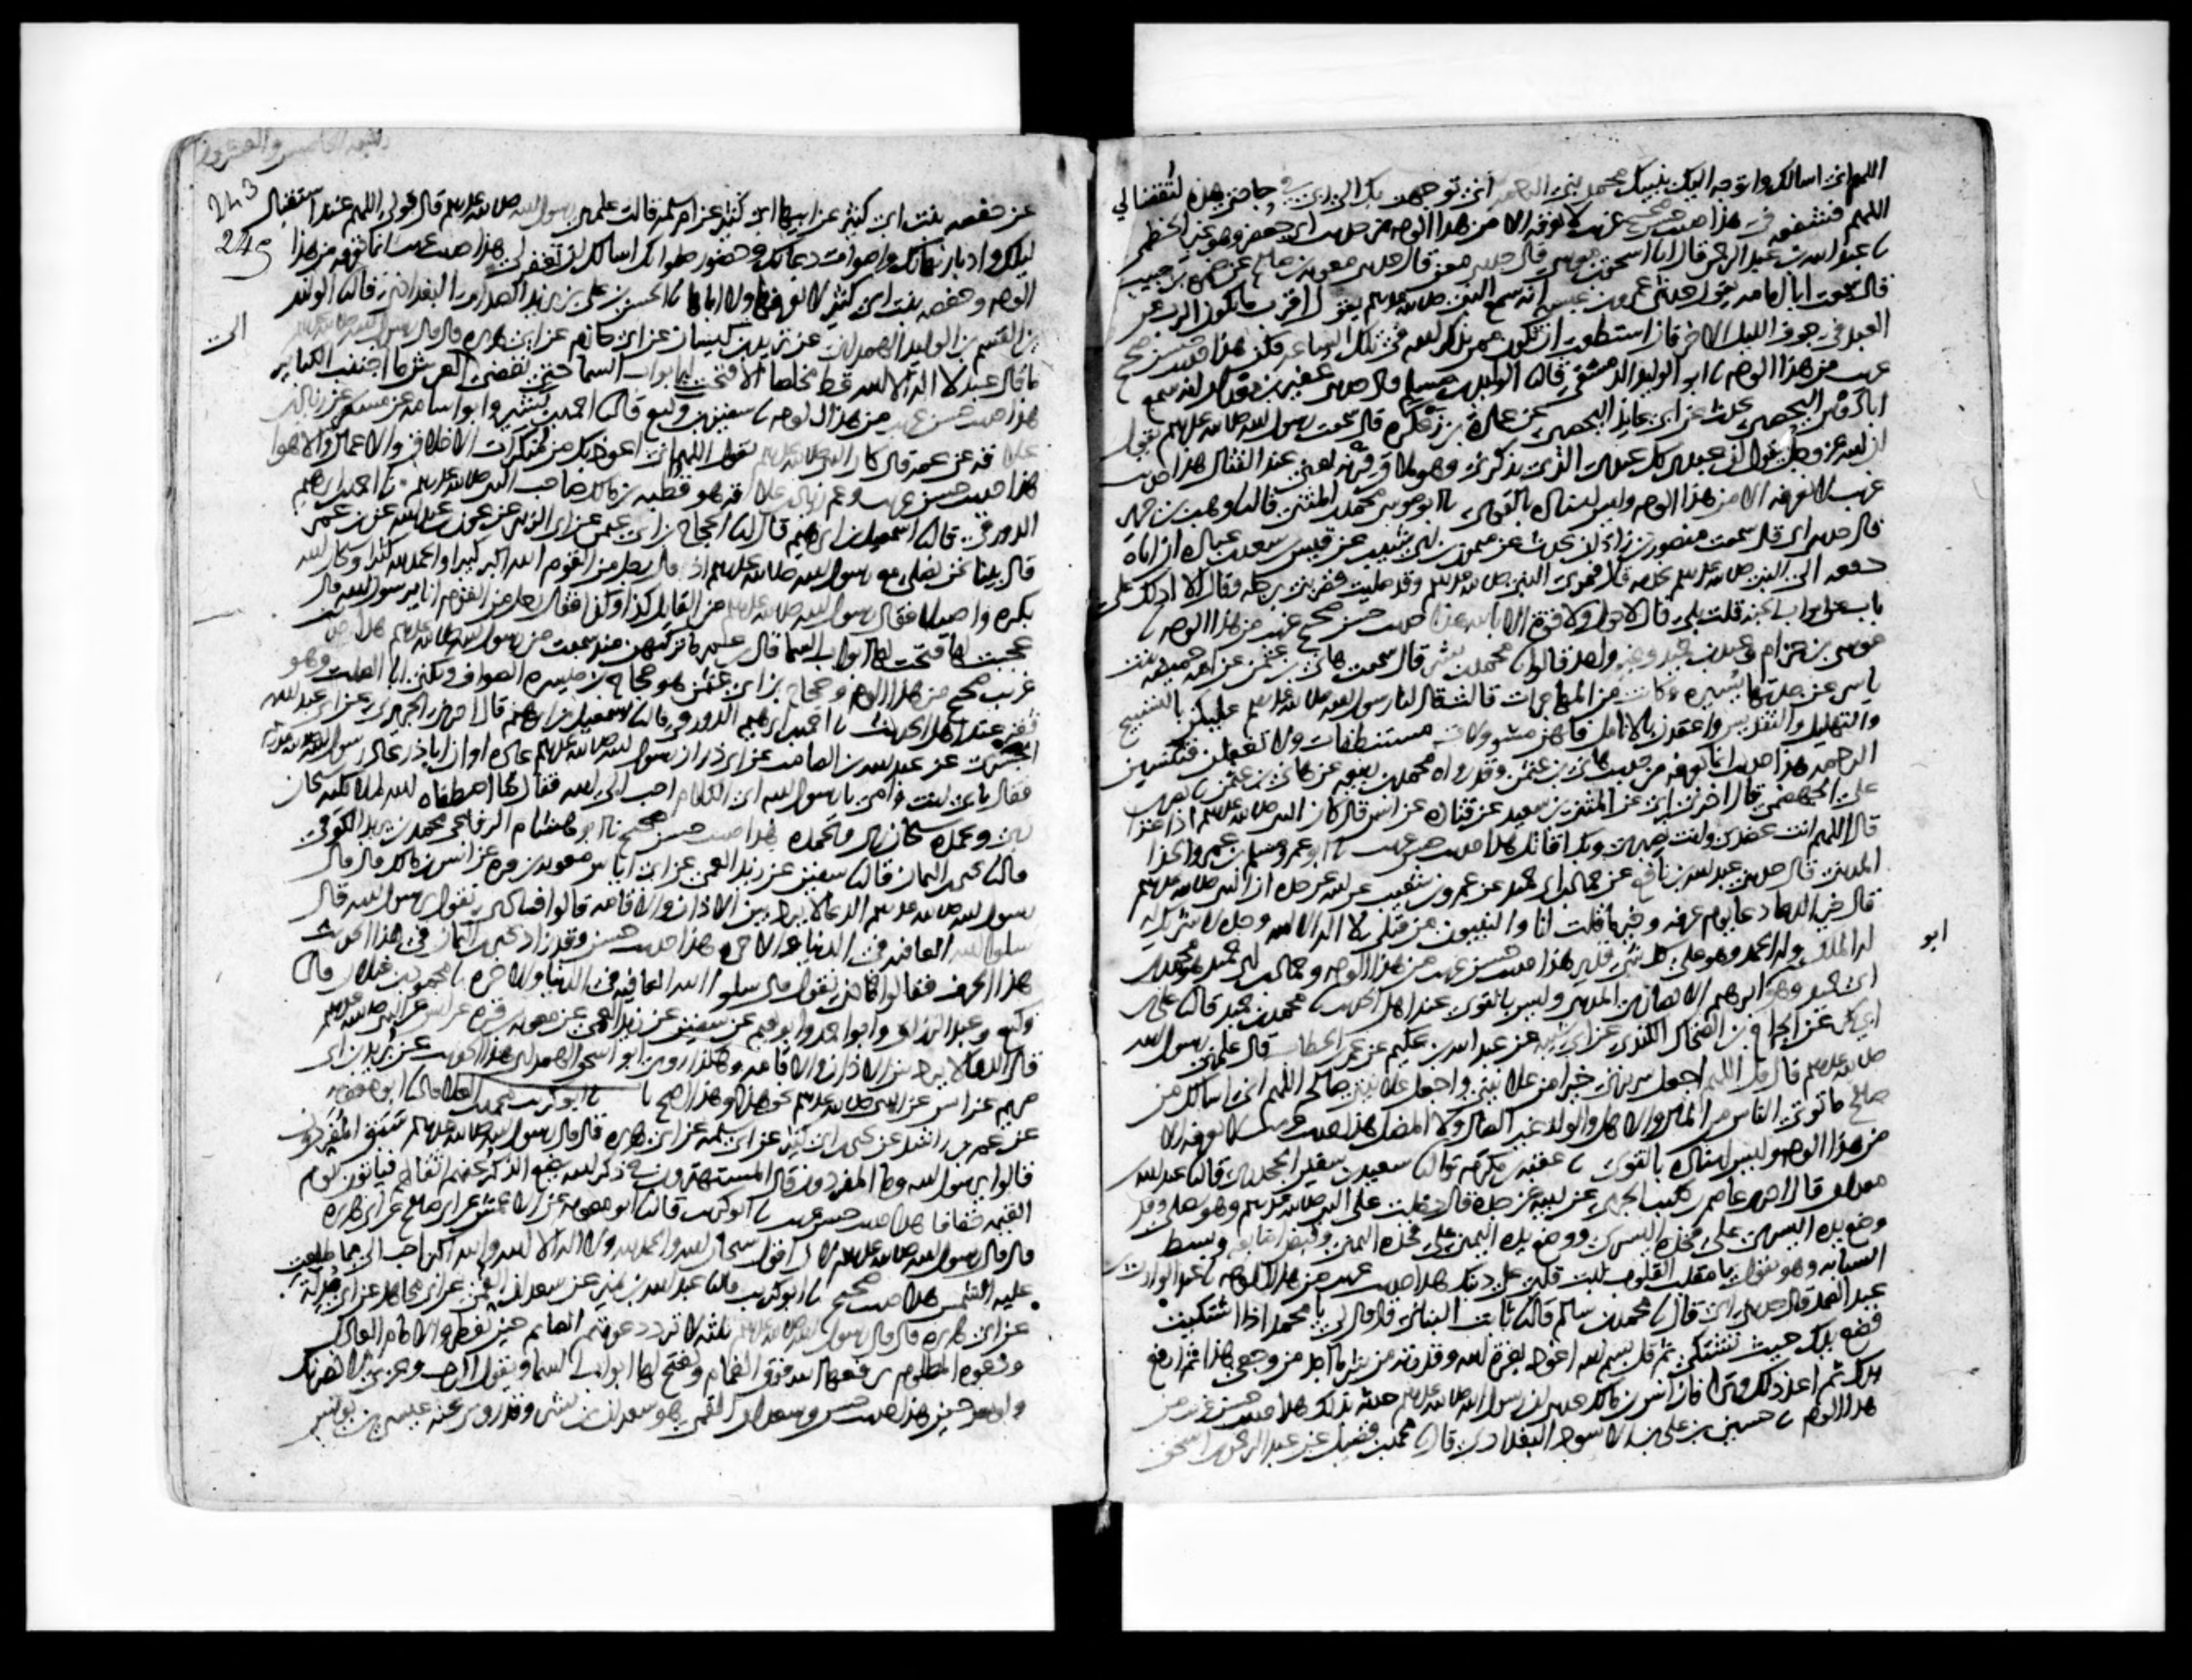 اللهم اني اسالك واتوجه اليك بنبيك محمد نبي الرحمة اني توجهت بك الى ربي في حاجتي هذه لتقضى لي
اللهم فشفعه في هذا حديث حسن صحيح غريب لا نعرفه الا من هذا الوجه من حديث ابي جعفر وهو غير الخطمي
نا عبد الله بن عبد الرحمن قال انا اسحق بن موسى قال حدثني معن قال حدثني معوية بن صالح عن ضمرة بن حبيب
قال سمعت ابا امامه يقول حدثني عمرو بن عبسة انه سمع النبي صلى الله عليه وسلم يقول اقرب ما يكون الرب من
العبد في جوف الليل الاخر فان استطعت ان تكون ممن يذكر الله في تلك الساعه فكن هذا حديث حسن صحيح
غريب من هذا الوجه نا ابو الوليد الدمشقي قال نا الوليد بن مسلم قال حدثني عفير بن معدان انه سمع
ابا دوس اليحصبي يحدث عن ابن عايذ اليحصبي عن عمارة بن زعكرة قال سمعت رسول الله صلى الله عليه وسلم يقول
ان الله عز وجل يقول ان عبدي كل عبدي الذي يذكرني وهو ملاق قرنه يعني عند القتال هذا حديث
غريب لا نعرفه الا من هذا الوجه وليس اسناده بالقوي نا ابو موسى محمد بن المثنى قال نا وهب بن جرير
قال حدثني ابي قال سمعت منصور بن زاذان يحدث عن ميمون بن ابي شبيب عن قيس بن سعد بن عباده ان اباه
دفعه الى النبي صلى الله عليه وسلم يخدمه قال فمر بي النبي صلى الله عليه وسلم وقد صليت فضربني برجله وقال الا ادلك على
باب من ابواب الجنة قلت بلى قال لا حول ولا قوة الا بالله هذا حديث حسن صحيح غريب من هذا الوجه نا
موسى بن حزام وعبد بن حميد وغير واحد قالوا نا محمد بن بشر قال سمعت هاني بن عثمن عن امه حميضة بنت
ياسر عن جدتها يسيرة وكانت من المهاجرات قالت قال لنا رسول الله صلى الله عليه وسلم عليكن بالتسبيح
والتهليل والتقديس واعقدن بالانامل فانهن مسئولات مستنطقات ولا تغفلن فتنسين
الرحمه هذا حديث انما نعرفه من حديث هاني بن عثمن وقد رواه محمد بن ربيعه عن هاني بن عثمن نا نصر بن
علي الجهضمي قال اخبرني ابي عن المثنى بن سعيد عن قتادة عن انس قال كان النبي صلى الله عليه وسلم اذا غزا
قال اللهم انت عضدي وانت نصيري وبك اقاتل هذا حديث حسن غريب نا ابو عمرو مسلم بن عمرو الحذا
المديني قال حدثني عبد الله بن نافع عن حماد بن ابي حميد عن عمرو بن شعيب عن ابيه عن جده ان النبي صلى الله عليه وسلم
قال خير الدعا دعا يوم عرفه وخير ما قلت انا والنبيون من قبلي لا اله الا الله وحده لا شريك له
له الملك وله الحمد وهو على كل شي قدير هذا حديث حسن غريب من هذا الوجه وحماد بن ابي حميد هو محمد بن
ابو
ابي حميد وهو ابرهيم الانصاري المديني وليس بالقوي عند اهل الحديث نا محمد بن حميد قال نا علي بن
ابي بكر عن الجراح بن الضحاك الكندي عن ابي شيبه عن عبد الله بن عكيم عن عمر بن الخطاب قال علمني رسول الله
صلى الله عليه وسلم قال قل اللهم اجعل سريرتي خيرا من علانيتي واجعل علانيتي صالحة اللهم اني اسالك من
صالح ما توتي الناس من المال والاهل والولد غير الضال ولا المضل هذا حديث غريب لا نعرفه الا
من هذا الوجه وليس اسناده بالقوي نا عقبة بن مكرم قال نا سعيد بن سفين الجحدري قال نا عبد الله
بن معدان قال اخبرني عاصم بن كليب الجرمي عن ابيه عن جده قال دخلت على النبي صلى الله عليه وسلم وهو يصلي وقد
وضع يده اليسرى على فخذه اليسرى ووضع يده اليمنى على فخذه اليمنى وقبض اصابعه وبسط
السبابه وهو يقول يا مقلب القلوب ثبت قلبي على دينك هذا حديث غريب من هذا الوجه نا عبد الوارث بن
عبد الصمد قال حدثني ابي قال نا محمد بن سالم قال نا ثابت البناني قال قال لي يا محمد اذا اشتكيت
فضع يدك حيث تشتكي ثم قل بسم الله اعوذ بعزة الله وقدرته من شر ما اجد من وجعي هذا ثم ارفع
يدك ثم اعد ذلك وترا فان انس بن مالك حدثني ان رسول الله صلى الله عليه وسلم حدثه بذلك هذا حديث حسن غريب من
هذا الوجه نا حسين بن علي بن الاسود البغدادي قال نا محمد بن فضيل عن عبد الرحمن بن اسحق
243
245
عن حفصه بنت ابي كثير عن ابيها ابي كثير عن ام سلمه قالت علمني رسول الله صلى الله عليه وسلم قال قولي اللهم عند استقبال
ليلك وادبار نهارك واصوات دعاتك وحضور صلواتك اسالك ان تغفر لي هذا حديث غريب انما نعرفه من هذا
الوجه وحفصه بنت ابي كثير لا نعرفها ولا اباها نا الحسين بن علي بن يزيد الصدائي البغدادي قال نا الوليد
الى
بن القسم بن الوليد الهمداني عن يزيد بن كيسان عن ابي حازم عن ابي هريره قال قال رسول الله صلى الله عليه وسلم
ما قال عبد لا اله الا الله قط مخلصا الا فتحت له ابواب السما حتى تفضي الى العرش ما اجتنب الكباير
هذا حديث حسن غريب من هذا الوجه نا سفين بن وكيع قال نا احمد بن بشير وابو اسامه عن مسعر عن زياد بن
علاقه عن عمه قال كان النبي صلى الله عليه وسلم يقول اللهم اني اعوذ بك من منكرات الاخلاق والاعمال والاهوا
هذا حديث حسن غريب وعم زياد بن علاقه هو قطبه بن مالك صاحب النبي صلى الله عليه وسلم نا احمد بن ابرهيم
الدورقي قال نا اسمعيل بن ابرهيم قال نا الحجاج بن ابي عثمن عن ابي الزبير عن عون بن عبد الله عن بن عمر
قال بينا نحن نصلي مع رسول الله صلى الله عليه وسلم اذ قال رجل من القوم الله اكبر كبيرا والحمد لله كثيرا وسبحان الله
بكره واصيلا فقال رسول الله صلى الله عليه وسلم من القايل كذا وكذا فقال رجل من القوم انا يرسول الله قال
عجبت لها فتحت لها ابواب السما قال بن عمر ما تركتهن منذ سمعت من رسول الله صلى الله عليه وسلم هذا حديث حسن
غريب صحيح من هذا الوجه وحجاج بن ابي عثمن هو حجاج بن ميسره الصواف ويكنى ابا الصلت وهو
ثقه عند اهل الحديث نا احمد بن ابرهيم الدورقي قال نا اسمعيل بن ابرهيم قال اخبرني الجريري عن ابي عبد الله
الجسري عن عبد الله بن الصامت عن ابي ذر ان رسول الله صلى الله عليه وسلم عاده او ان ابا ذر عاد رسول الله صلى الله عليه وسلم
فقال بابي انت وامي يا رسول الله اي الكلام احب الى الله فقال ما اصطفاه الله لملائكته سبحان
ربي وبحمده سبحان ربي وبحمده هذا حديث حسن صحيح نا ابو هشام الرفاعي محمد بن يزيد الكوفي
قال نا يحيى بن اليمان قال نا سفين عن زيد العمي عن ابي اياس معويه بن قره عن انس بن مالك قال قال
رسول الله صلى الله عليه وسلم الدعا لا يرد بين الاذان والاقامه قالوا فماذا نقول يرسول الله قال
سلوا الله العافيه في الدنيا والاخره هذا حديث حسن وقد زاد يحيى بن اليمان في هذا الحديث
هذا الحرف فقالوا فماذا نقول قال سلوا الله العافيه في الدنيا والاخره نا محمود بن غيلان قال نا
وكيع وعبد الرزاق وابو احمد وابو نعيم عن سفين عن زيد العمي عن معويه بن قره عن انس عن النبي صلى الله عليه وسلم
قال الدعا لا يرد بين الاذان والاقامه وهكذا روى ابو اسحق الهمداني هذا الحديث عن بريد بن ابي
مريم عن انس عن النبي صلى الله عليه وسلم نحو هذا وهذا اصح نا ابو كريب محمد بن العلا قال نا ابو معويه
عن عمر بن راشد عن يحيى بن ابي كثير عن ابي سلمه عن ابي هريره قال قال رسول الله صلى الله عليه وسلم سبق المفردون
قالوا يرسول الله وما المفردون قال المستهترون في ذكر الله يضع الذكر عنهم اثقالهم فياتون يوم
القيمه خفافا هذا حديث حسن غريب نا ابو كريب قال نا ابو معويه عن الاعمش عن ابي صالح عن ابي هريره
قال قال رسول الله صلى الله عليه وسلم لان اقول سبحان الله والحمد لله ولا اله الا الله والله اكبر احب الي مما طلعت
عليه الشمس هذا حديث صحيح نا ابو كريب قال نا عبد الله بن نمير عن سعدان القمي عن ابي مجاهد عن ابي مدلة
عن ابي هريره قال قال رسول الله صلى الله عليه وسلم ثلثه لا ترد دعوتهم الصايم حين يفطر والامام العادل
ودعوه المظلوم يرفعها الله فوق الغمام ويفتح لها ابواب السما ويقول الرب وعزتي لانصرنك
ولو بعد حين هذا حديث حسن وسعدان القمي هو سعدان بن بشر وقد روى عنه عيسى بن يونس